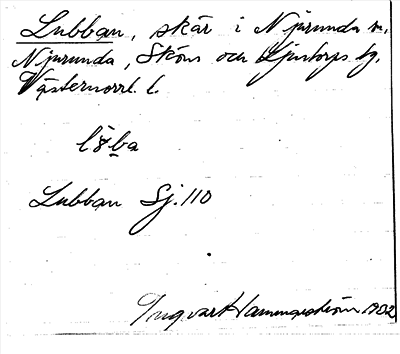 Lubban, skär i Njurunda sn,
Njurunda, Sköns och Ljustorps tg,
Västernorrl. l.
Lubban Sj. 110
Ingvar Hammarström 1932